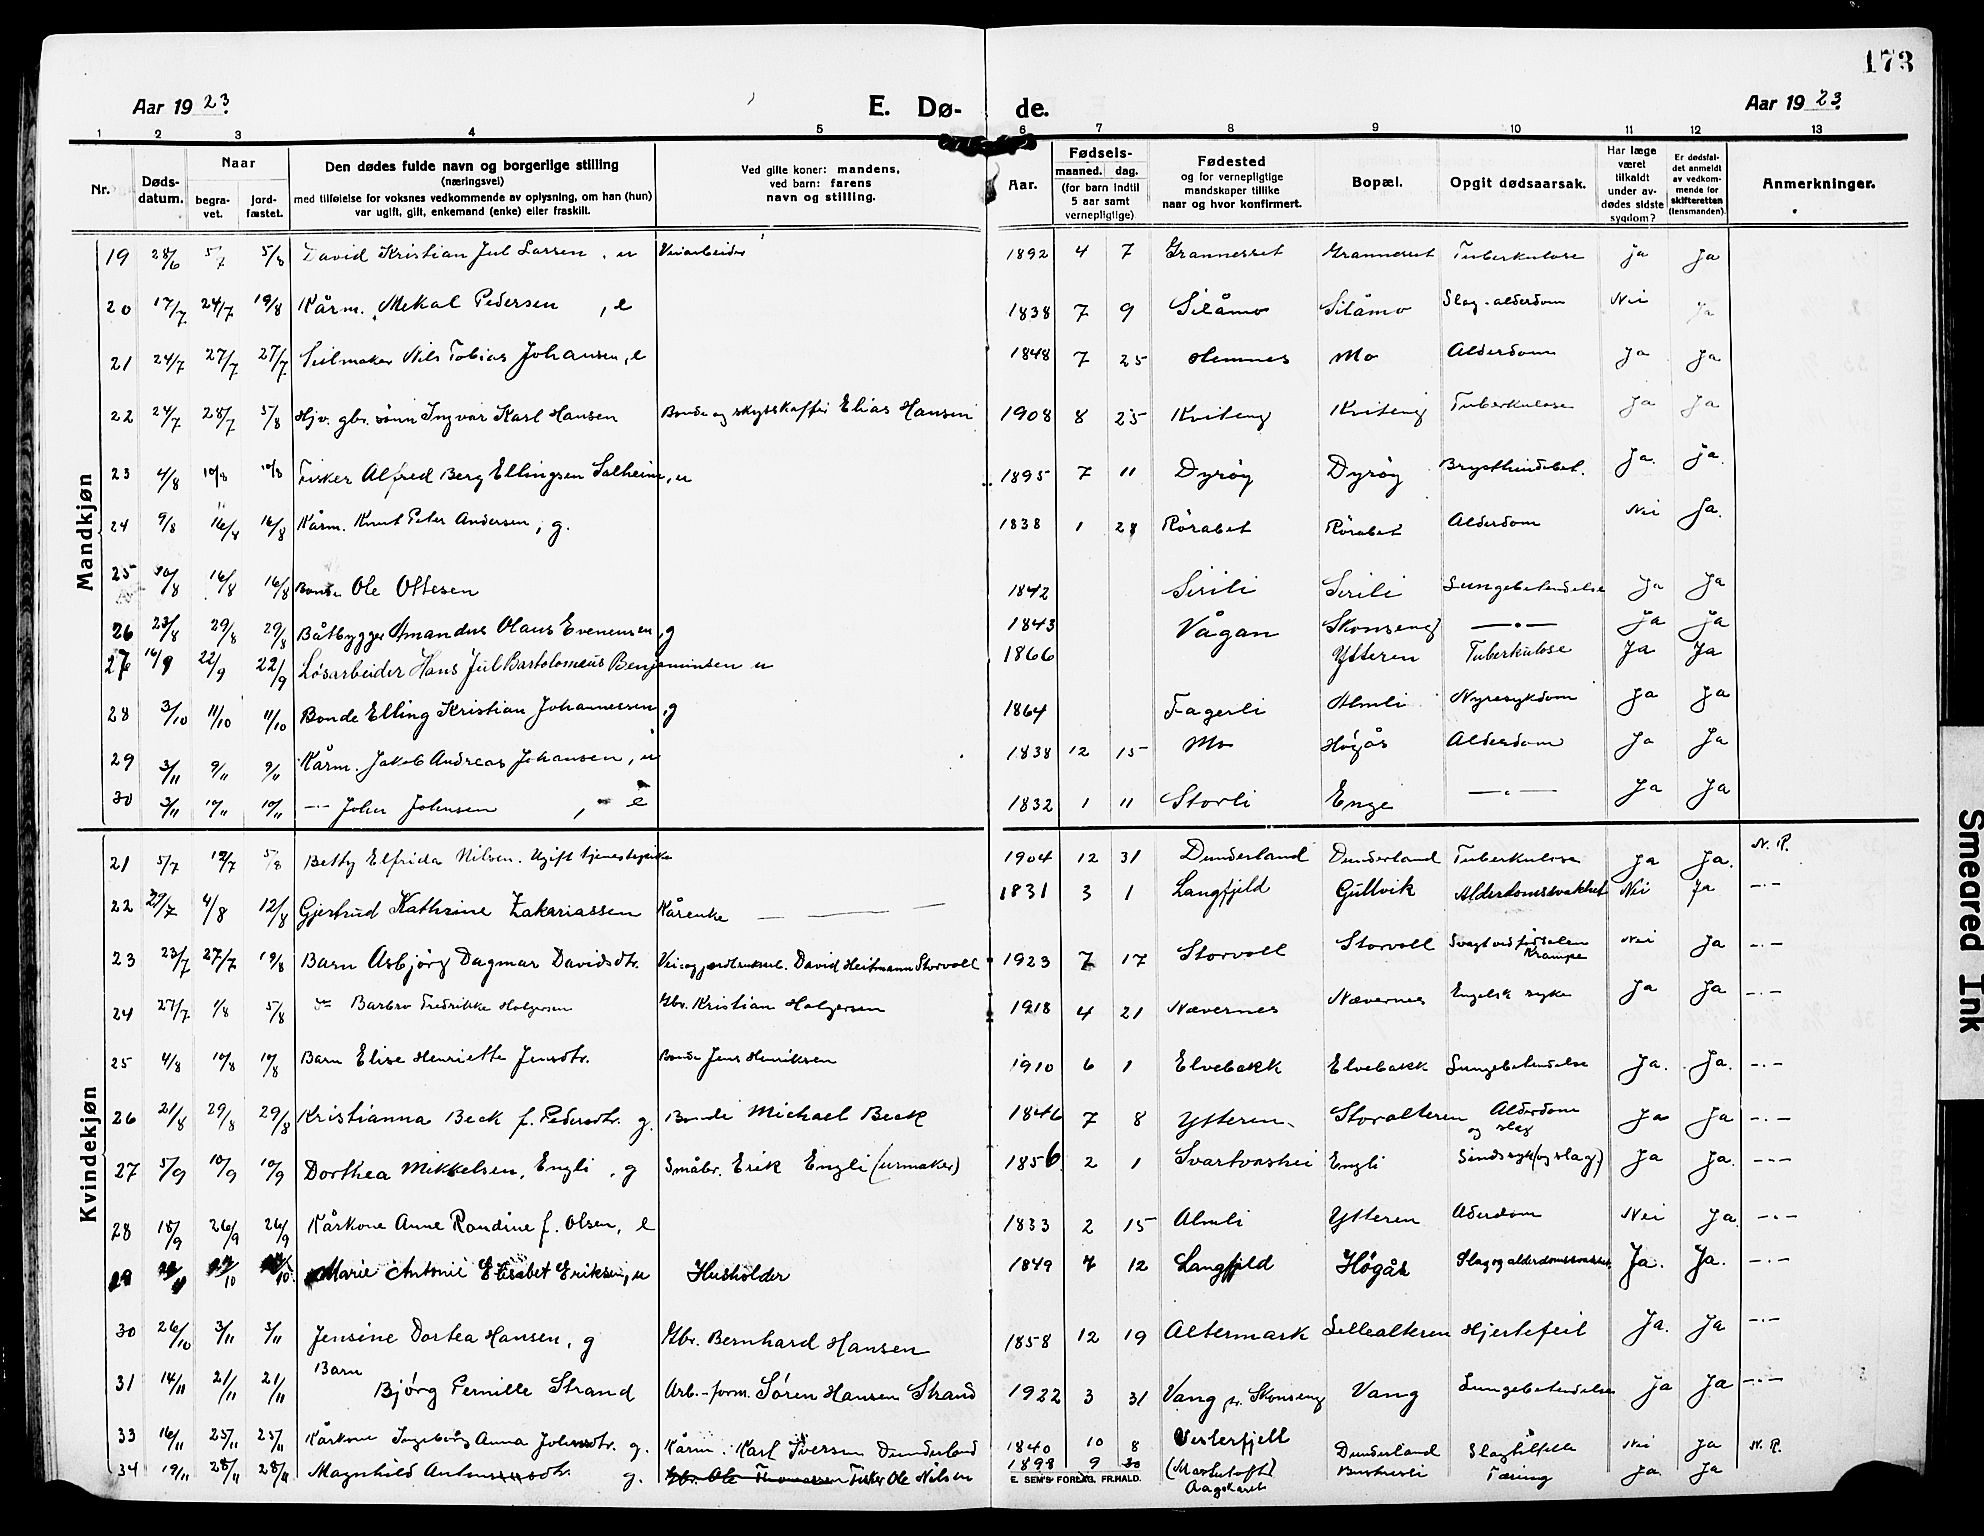 173
Aar 1923.
E. Dø-
de.
Aar 1923.
1 2 3 4 5 6 7 8 9 10 11 12 13
Nr.
Døds-
datum.
Naar
begra-
vet.
jord-
fæstet.
Den dødes fulde navn og borgerlige stilling
(næringsvei)
med tilføielse for voksnes vedkommende av oplysning, om han (hun)
var ugift, gift, enkemand (enke) eller fraskilt.
Ved gifte koner: mandens,
ved barn: farens
navn og stilling.
Aar.
Fødsels-
maaned. dag.
(for barn indtil
5 aar samt
vernepligtige)
Fødested
og for vernepligtige
mandskaper tillike
naar og hvor konfirmert.
Bopæl.
Opgit dødsaarsak.
Har læge
været
tilkaldt
under av-
dødes sidste
sygdom?
Er dødsfal-
det anmeldt
av vedkom-
mende for
skifteretten
(lensmanden).
Anmerkninger.
Mandkjøn
19 28/6 5/7 5/8 David Kristian Jul Larsen, u Veiarbeider 1892 4 7 Grannesset Grannesset Tuberkulose Ja Ja
20 17/7 24/7 19/8 Kårm. Mekal Pedersen, e 1838 7 9 Silåmo Silåmo Slag-alderdom Nei Ja
21 24/7 27/7 27/7 Seilmaker Nils Tobias Johansen, e 1848 7 25 Hemnes Mo Alderdom Ja Ja
22 24/7 28/7 5/8 Hjv. gbr. sønn Ingvar Karl Hansen Bonde og skysskaffer Elias Hansen 1908 8 25 Kviteng Kviteng Tuberkulose Ja Ja
23 4/8 10/8 10/8 Fisker Alfred Berg Ellingsen Solheim, u 1895 7 11 Dyrøy Dyrøy Brysthindebet. Ja. Ja.
24 9/8 16/8 16/8 Kårm. Knut Peter Andersen, g. 1838 1 28 Rørabet Rørabet Alderdom Nei Ja.
25 30/8 16/8 16/8 Bonde Ole Ottesen 1842 Sirili Sirili Lungebetendelse Ja Ja
26 23/8 29/8 29/8 Båtbygger Amandus Olaus Evenensen, g 1843 Vågan Skonseng —"— Ja Ja
27 16/9 22/9 22/9 Løsarbeider Hans Jul Bartolomeus Benjaminsen u 1866 Ytteren Tuberkulose Ja Ja
28 3/10 11/10 11/10 Bonde Elling Kristian Johannessen, g 1864 Fagerli Almli Nyresykdom Ja Ja
29 3/11 9/11 9/11 Kårm. Jakob Andreas Johansen, u 1838 12 15 Mo Høgås Alderdom Ja Ja
30 3/11 10/11 10/11 —"— John Johnsen, e 1832 1 11 Storli Enge —"— Ja Ja
Kvindekjøn
21 5/7 12/7 5/8 Betty Elfrida Nilsen. Ugift tjenestepike 1904 12 31 Dunderland Dunderland Tuberkulose Ja Ja. N. R.
22 29/7 4/8 12/8 Gjertrud Kathrine Zakariassen Kårenke — — — 1831 3 1 Langfjeld Gullvik Alderdomssvakhet Nei Ja —"—
23 23/7 27/7 19/8 Barn Asbjørg Dagmar Davidsdtr. Vei og jordbruksarb. David Heitmann Storvoll 1923 7 17 Storvoll Storvoll Svagt ved fødselen Krampe Nei Ja —"—
24 27/7 1/8 5/8 —"— Barbro Fredrikke Holgersen Gbr. Kristian Holgersen 1918 4 21 Nævernes Nævernes Engelsk syke Ja Ja —"—
25 4/8 10/8 10/8 Barn Elise Henriette Jensdtr. Bonde Jens Henriksen 1910 6 1 Elvebakk Elvebakk Lungebetendelse Ja. Ja. —"—
26 21/8 29/8 29/8 Kristianna Beck f. Pedersdtr. g. Bonde Michael Beck 1846 7 8 Ytteren Storalteren Alderdom og slag Ja Ja —"—
27 5/9 10/9 10/9 Dorthea Mikkelsen, Engli, g Småbr. Erik Engli (urmaker) 1856 2 1 Svartvashei Engli Sindssyk (og slag) Ja Ja. —"—
28 18/9 26/9 26/9 Kårkone Anne Randine f. Olsen, e 1833 2 15 Almli Ytteren Alderdom Nei Ja —"—
29 Marie Antonie Elisabet Eriksen, u Husholder 1849 7 12 Langfjeld Høgås Slag og alderdomssvakhet Ja. Ja. —"—
30 26/10 3/11 3/11 Jensine Dortea Hansen, g Gbr. Bernhard Hansen 1858 12 19 Altermark Lillealteren Hjertefeil Ja. Ja —"—
31 14/11 21/11 21/11 Barn Bjørg Pernille Strand Arb.-form. Søren Hansen Strand 1922 3 31 Vang pr. Skonseng Vang Lungebetendelse Ja Ja —"—
33 16/11 25/11 25/11 Kårkone Ingeborg Anna Johnsdtr. g. Kårm. Karl Iversen Dunderland 1840 10 8 Vesterfjell Dunderland Slagtilfelle Nei Ja N. R.
34 19/11 28/11 28/11 Magnhild Antonsdtr. g. Gbr. Ole Thomassen Fisker Ole Nilsen 1898 9 30 (Aagskaret) Tæring Ja. Ja
E. SEM'S FORLAG, FR.HALD.
Smeared Ink